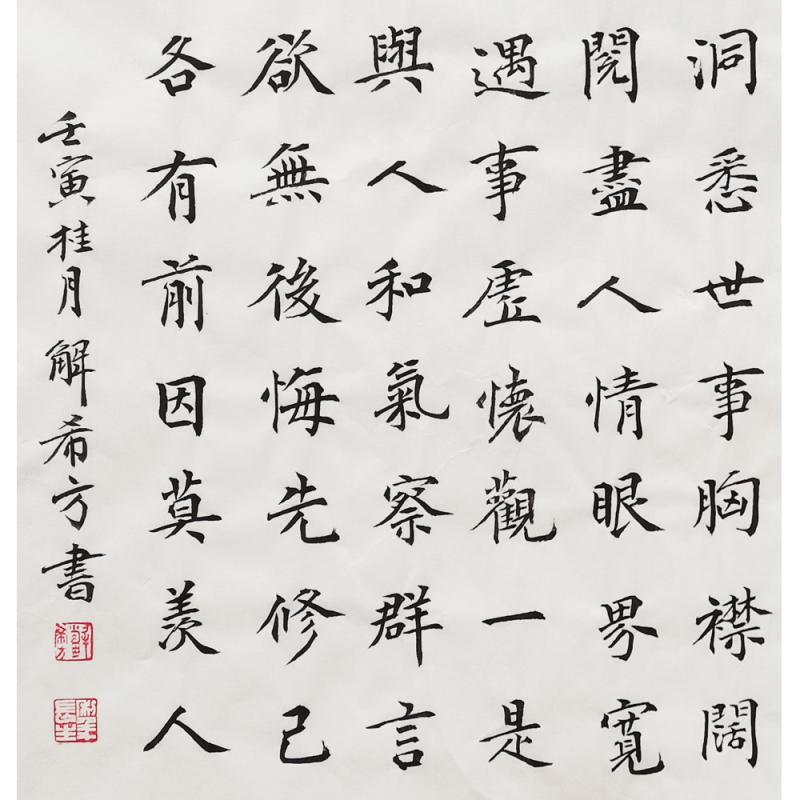 洞悉世事胸襟闊
閱盡人情眼界寬
遇事虛懷觀一是
與人和氣察群言
欲無後悔先修己
各有前因莫羨人
壬寅桂月解希方書